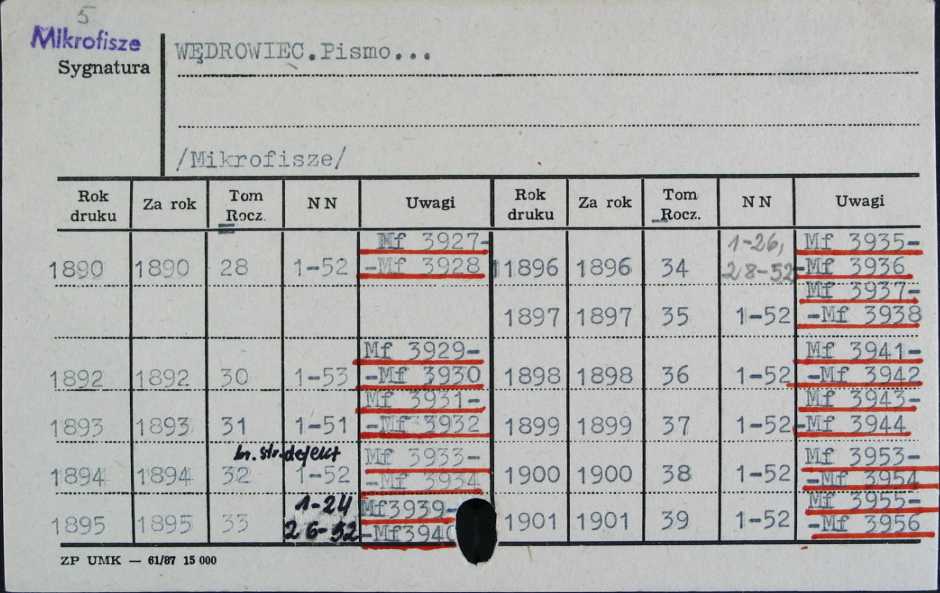 5
Mikrofisze
Sygnatura
WĘDROWIEC.Pismo...
/Mikrofisze/
Rok druku Za rok Tom Rocz. NN Uwagi Rok druku Za rok Tom Rocz. NN Uwagi
1890 1890 28 1-52 Mf 3927- -Mf 3928 1896 1896 34 1-26, 28-52 Mf 3935- -Mf 3936
1897 1897 35 1-52 Mf 3937- -Mf 3938
1892 1892 30 1-53 Mf 3929- -Mf 3930 1898 1898 36 1-52 Mf 3941- -Mf 3942
1893 1893 31 1-51 Mf 3931- -Mf 3932 1899 1899 37 1-52 Mf 3943- -Mf 3944
br. str. defekt
1894 1894 32 1-52 Mf 3933- -Mf 3934 1900 1900 38 1-52 Mf 3953- -Mf 3954
1895 1895 33 1-24 26-52 Mf3939- -Mf3940 1901 1901 39 1-52 Mf 3955- -Mf 3956
ZP UMK — 61/87 15 000